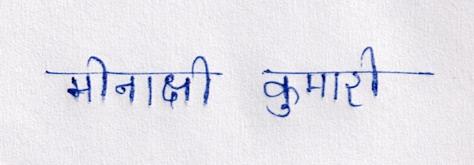 मीनाक्षी कुमारी